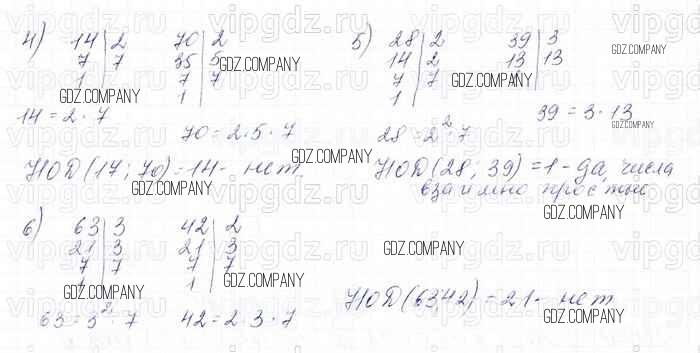 4) 14|2 70|2
7|7 35|5
1| 7|7
1|
14 = 2 · 7
70 = 2 · 5 · 7
НОД(17; 70) = 14 - нет.
5) 28|2 39|3
14|2 13|13
7|7
1|
39 = 3 · 13
28 = 2² · 7
НОД(28; 39) = 1 - да, числа
взаимно простые
6) 63|3 42|2
21|3 21|3
7|7 7|7
1| 1|
63 = 3² · 7 42 = 2 · 3 · 7
НОД(6342) = 21 - нет
GDZ.COMPANY
GDZ.COMPANY
GDZ.COMPANY
GDZ.COMPANY
GDZ.COMPANY
GDZ.COMPANY
GDZ.COMPANY
GDZ.COMPANY
GDZ.COMPANY
GDZ.COMPANY
GDZ.COMPANY
GDZ.COMPANY
vipgdz.ru